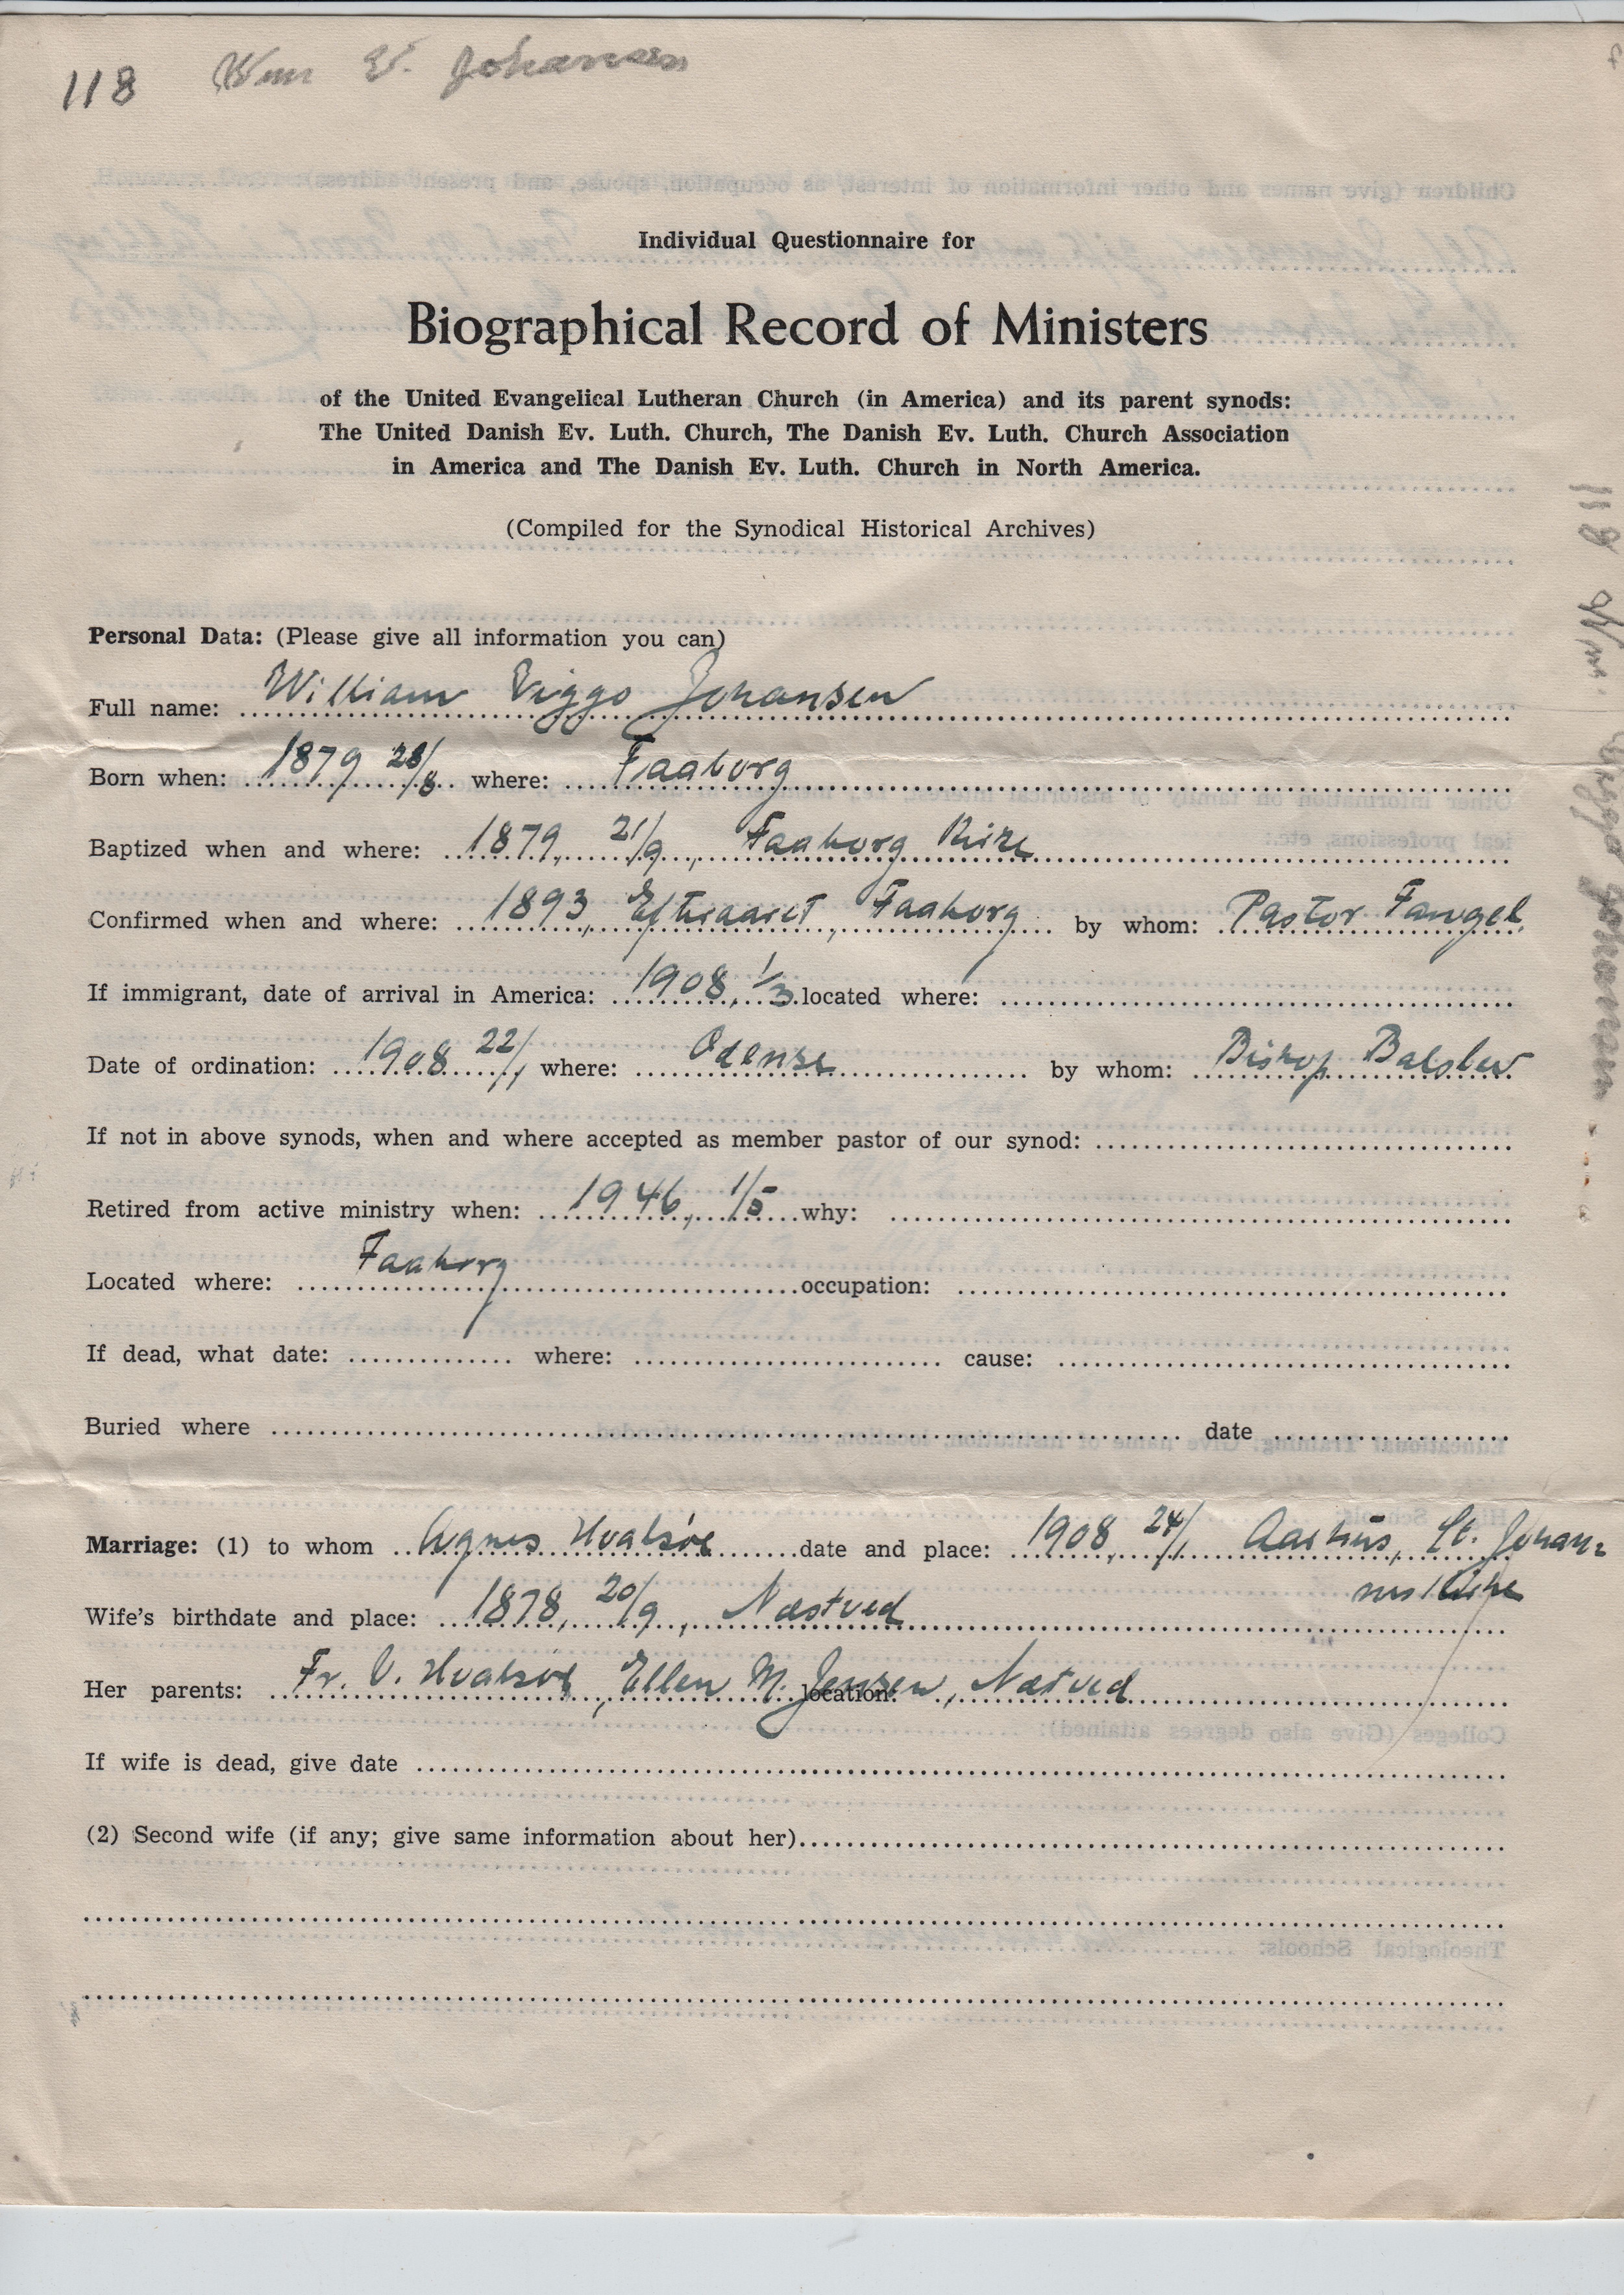 118 Wm V. Johansen
Individual Questionnaire for
Biographical Record of Ministers
of the United Evangelical Lutheran Church (in America) and its parent synods:
The United Danish Ev. Luth. Church, The Danish Ev. Luth. Church Association
in America and The Danish Ev. Luth. Church in North America.
(Compiled for the Synodical Historical Archives)
Personal Data: (Please give all information you can)
Full name: William Viggo Johansen
Born when: 1879 28/8 where: Faaborg
Baptized when and where: 1879, 21/9, Faaborg Kirke
Confirmed when and where: 1893, Efteraaret, Faaborg by whom: Pastor
If immigrant, date of arrival in America: 1908, 1/3 located where:
Date of ordination: 1908 22/1 where: Odense by whom: Bishop Balslev
If not in above synods, when and where accepted as member pastor of our synod:
Retired from active ministry when: 1946, 1/5 why:
Located where: Faaborg occupation:
If dead, what date: where: cause:
Buried where date
Marriage: (1) to whom Agnes Hvalsøe date and place: 1908, 24/1 Aarhus, St. Johan-
nes Kirke
Wife's birthdate and place: 1878, 20/9, Næstved
Her parents: Fr. V. Hvalsøe, Ellen M. Jensen, location: Næstved
If wife is dead, give date
(2) Second wife (if any; give same information about her)
118 Wm. Viggo Johansen